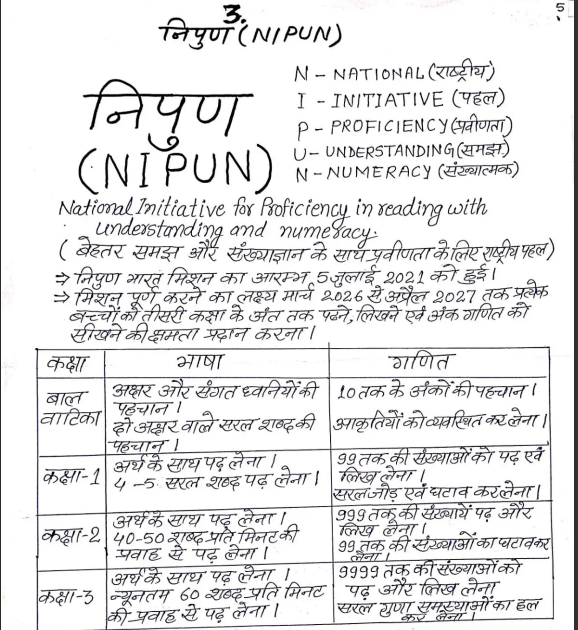 5
3.
निपुण (NIPUN)
निपुण
(NIPUN)
N - NATIONAL (राष्ट्रीय)
I - INITIATIVE (पहल)
P - PROFICIENCY (प्रवीणता)
U - UNDERSTANDING (समझ)
N - NUMERACY (संख्यात्मक)
National Initiative for Proficiency in reading with
understanding and numeracy.
( बेहतर समझ और संख्याज्ञान के साथ प्रवीणता के लिए राष्ट्रीय पहल)
⇒ निपुण भारत मिशन का आरम्भ 5 जुलाई 2021 को हुई।
⇒ मिशन पूर्ण करने का लक्ष्य मार्च 2026 से अप्रैल 2027 तक प्रत्येक
बच्चों को तीसरी कक्षा के अंत तक पढने, लिखने एवं अंक गणित को
सीखने की क्षमता प्रदान करना।
कक्षा भाषा गणित
बाल
वाटिका
अक्षर और संगत ध्वनियों की
पहचान।
दो अक्षर वाले सरल शब्द की
पहचान।
10 तक के अंकों की पहचान।
आकृतियों को व्यवस्थित कर लेना।
कक्षा-1
अर्थ के साथ पढ़ लेना।
4-5 सरल शब्द पढ़ लेना।
99 तक की संख्याओं को पढ़ एवं
लिख लेना।
सरल जोड़ एवं घटाव कर लेना।
कक्षा-2
अर्थ के साथ पढ़ लेना।
40-50 शब्द प्रति मिनट की
प्रवाह से पढ़ लेना।
999 तक की संख्यायें पढ़ और
लिख लेना।
99 तक की संख्याओं का घटाव कर
लेना।
कक्षा-3
अर्थ के साथ पढ़ लेना।
न्यूनतम 60 शब्द प्रति मिनट
की प्रवाह से पढ़ लेना।
9999 तक की संख्याओं को
पढ़ और लिख लेना
सरल गुणा समस्याओं का हल
कर लेना।